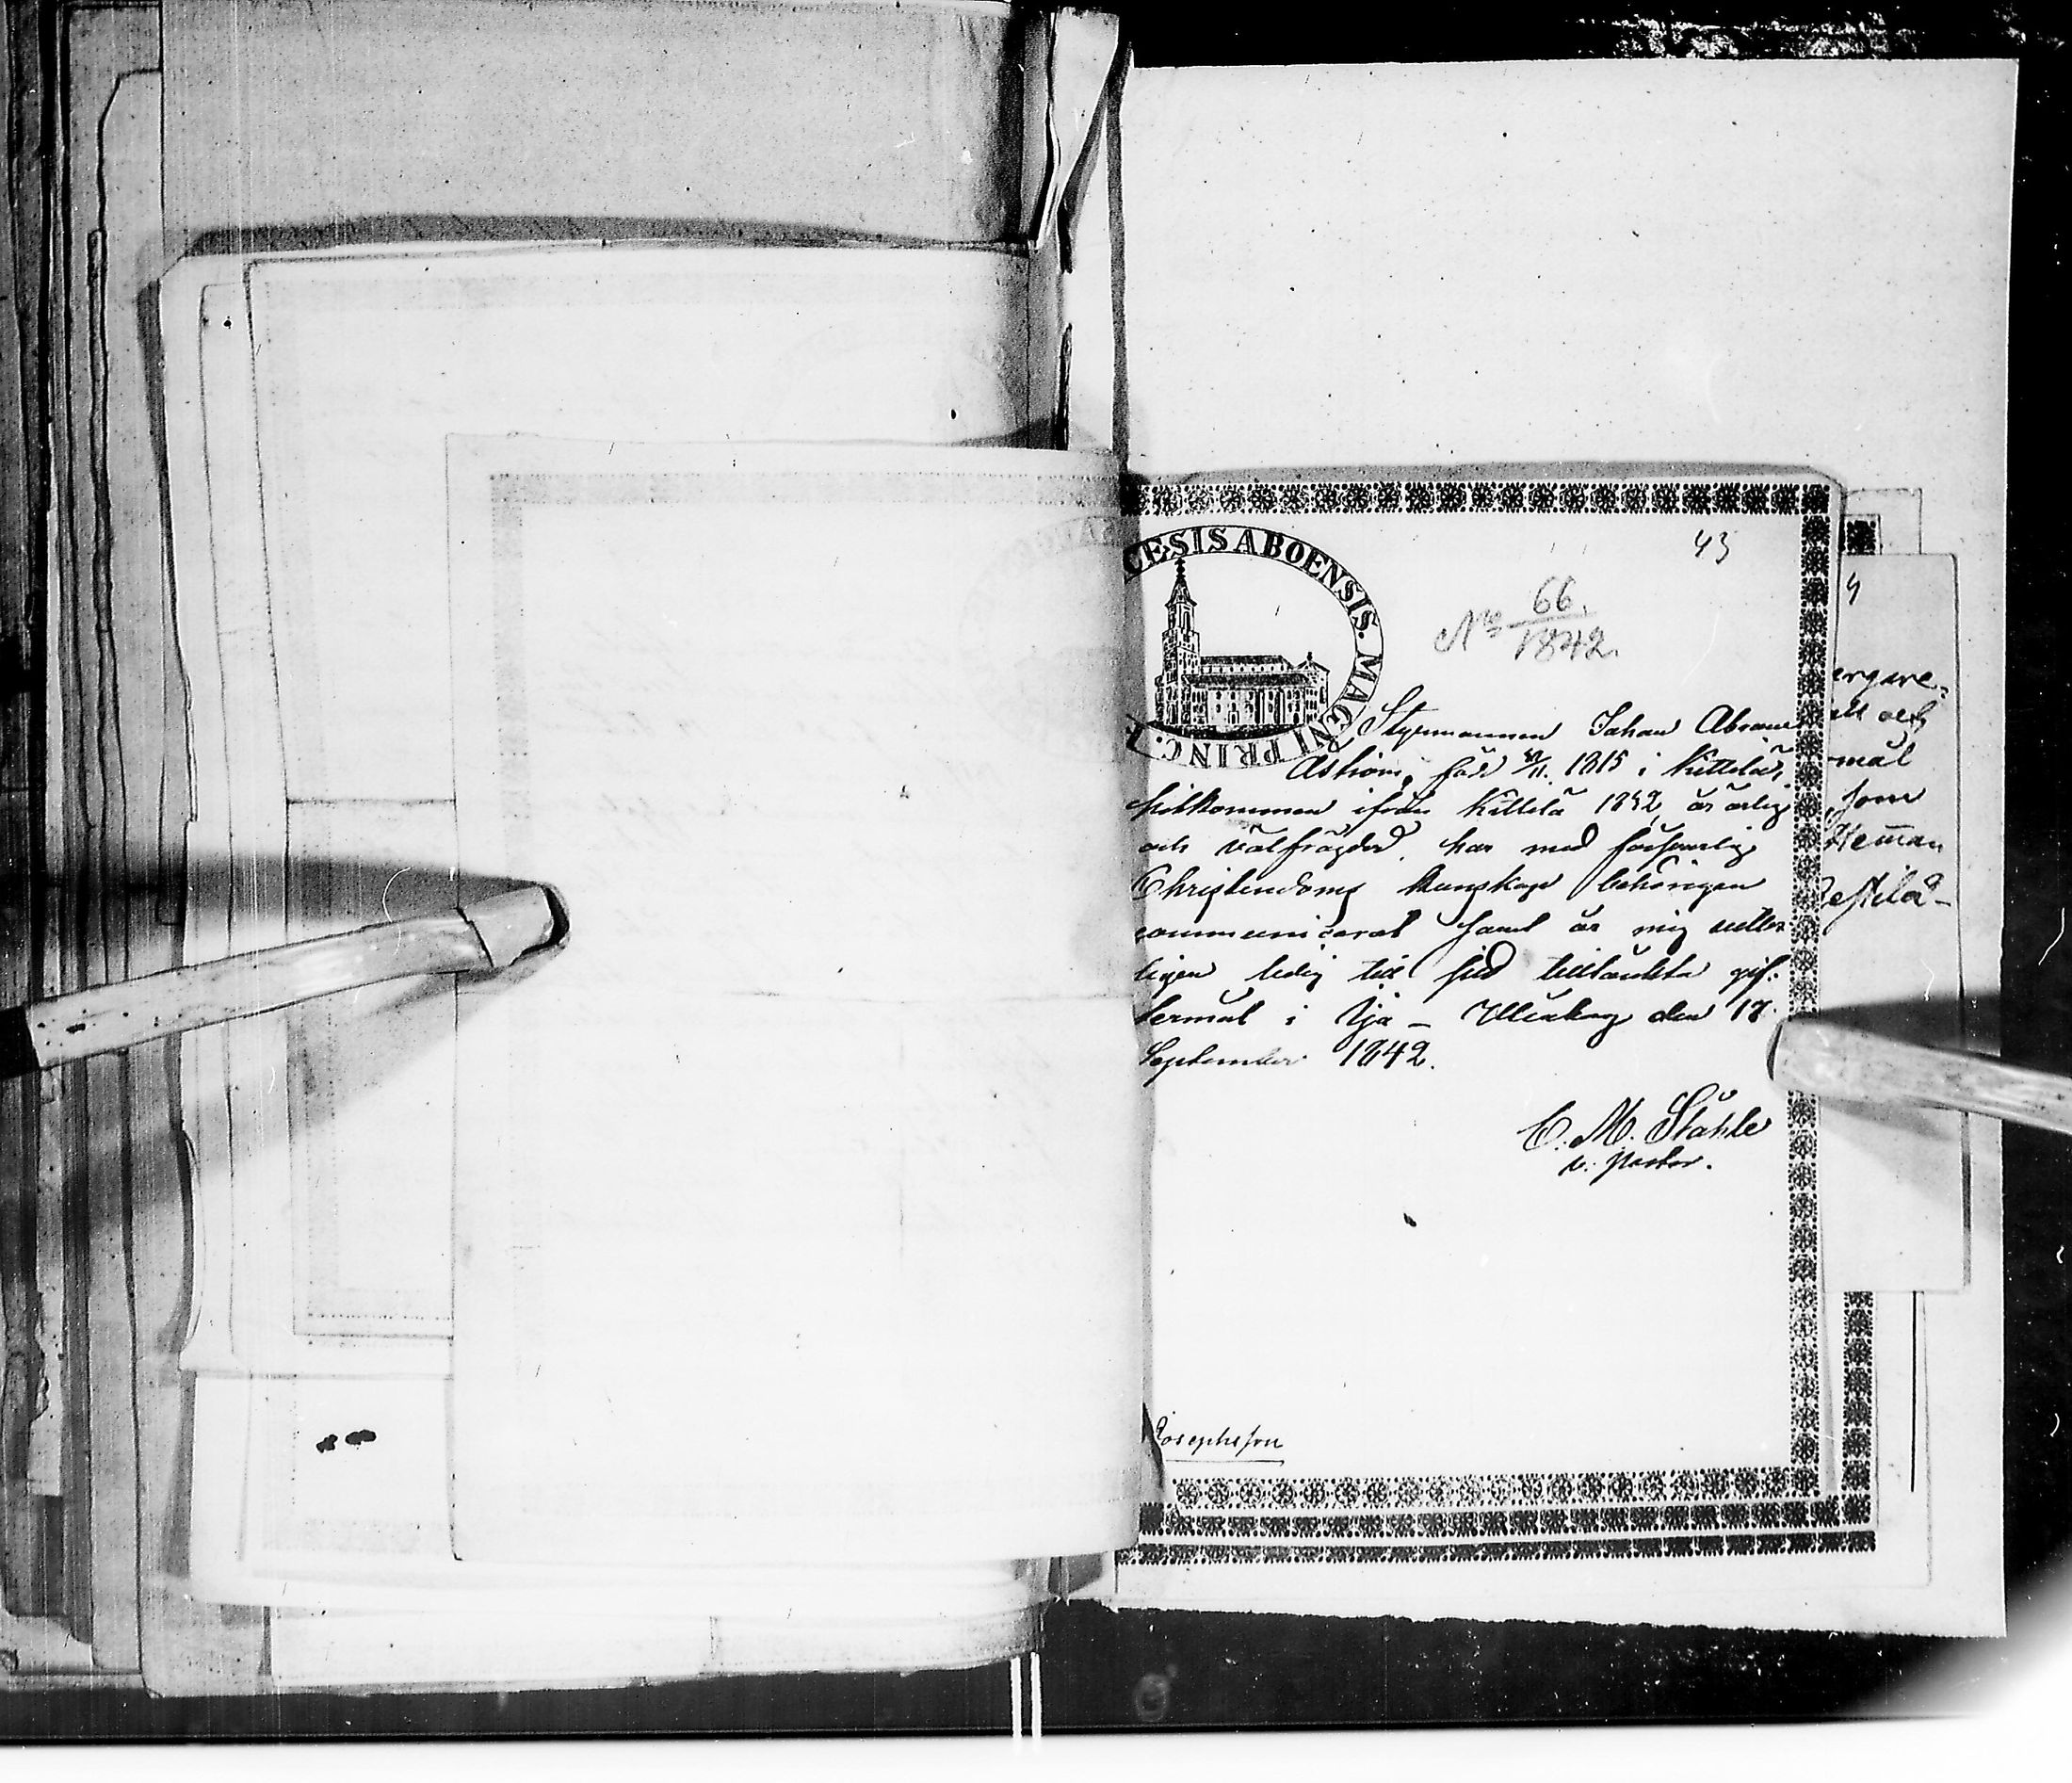 43
CESIS ABOENSIS. MAGNI PRINC. F
N:ro 66.
1842.
Styrmannen Johan Abram
Åström, född 1815 i Kittilä,
hitkommen ifrån Kittilä 1832, är ärlig
och välfrägdad, har med försvarlig
Christendoms kunskap behörigen
communicerat samt är mig vetter
ligen ledig till sitt tilltänkta gif:
termål i Ijo - Uleåborg den 17
September 1842.
C. M. Ståhle
v. pastor.
Josephsson
4
ergare,
att och
mål
som
Heman